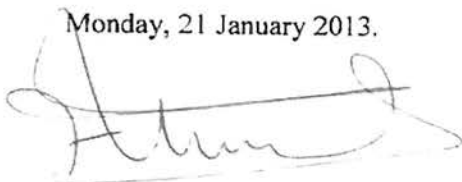 Monday, 21 January 2013.